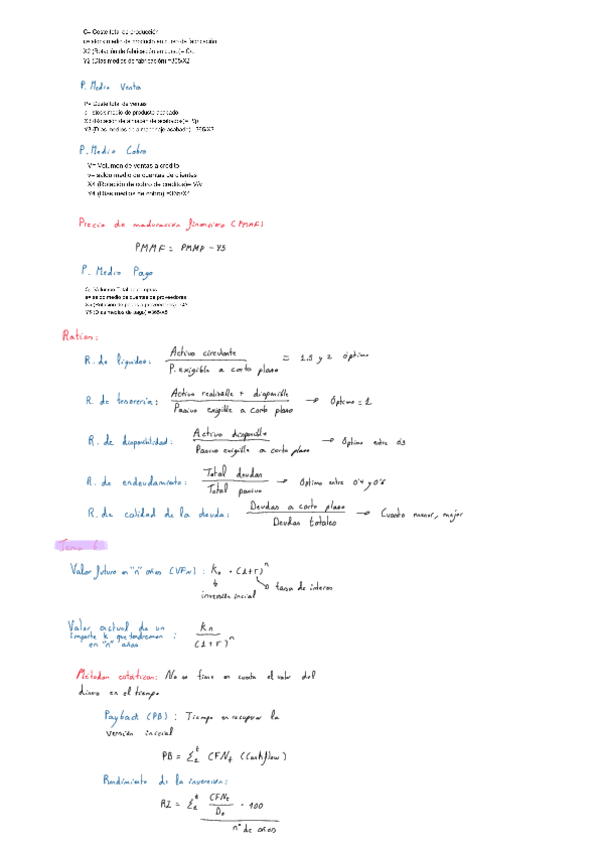 C= Coste total de producción
X2 (Rotación de fabricación en curso)=
Y2 (Días medios de fabricación) =365/X2
P. Medio Venta
P= Coste total de ventas
medio de producto acabado
X3 (Rotación de almacén de acabados)=
Y3 (Días medios de almacenaje acabado) =365/X3
P. Medio Cobro
V= Volumen de ventas a crédito
v= saldo medio de cuentas de clientes
X4 (Rotación de cobro de créditos)= V/v
Y4 (Días medios de cobro) =365/X4
Precio de maduración financiero (PMMF)
PMMF = PMMP - Y5
P. Medio Pago
saldo medio de cuentas de proveedores
Y5 (Días medios de pago) =365/X5
Ratios:
R. de liquidez: Activo circulante / P. exigible a corto plazo = 1,5 y 2 óptimo
R. de tesorería: Activo realizable + disponible / Pasivo exigible a corto plazo → Óptimo = 1
R. de disponibilidad: Activo disponible / Pasivo exigible a corto plazo → Óptimo entre 0,3
R. de endeudamiento: Total deudas / Total pasivo → Óptimo entre 0'4 y 0'6
R. de calidad de la deuda: Deudas a corto plazo / Deudas totales → Cuanto menor, mejor
Tema 6
Valor futuro en "n" años (VFn) : K₀ · (1+r)ⁿ
inversión inicial
tasa de interes
Valor actual de un
importe k que tendremos : Kn / (1+r)ⁿ
en "n" años
Métodos estáticos: No se tiene en cuenta el valor del
dinero en el tiempo
Payback (PB) : Tiempo en recuperar la
versión inicial
PB = Σ₁ᵗ CFNt (Cashflow)
Rendimiento de la inversión:
RI = Σ₁ᵗ CFNt / D₀ · 100
nº de años